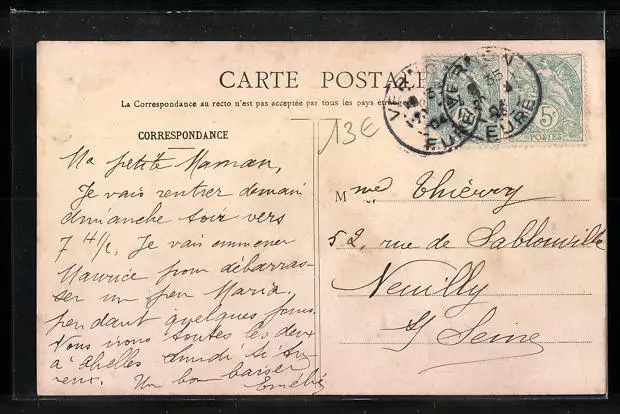 CARTE POSTALE
La Correspondance au recto n'est pas acceptée par tous les pays
CORRESPONDANCE
13€
Ma petite Maman,
Je vais rentrer demain
dimanche soir vers
7 h 1/2. Je vais emmener
Maurice pour débarras-
ser un peu Maria
pendant quelques jours.
Vous irons toutes les deux
à lundi
Un bon baiser
Mme Thiérry
52, rue de Sablonville
Neuilly
s/ Seine
VERNON
EURE
VERNON
EURE
5c
POSTES